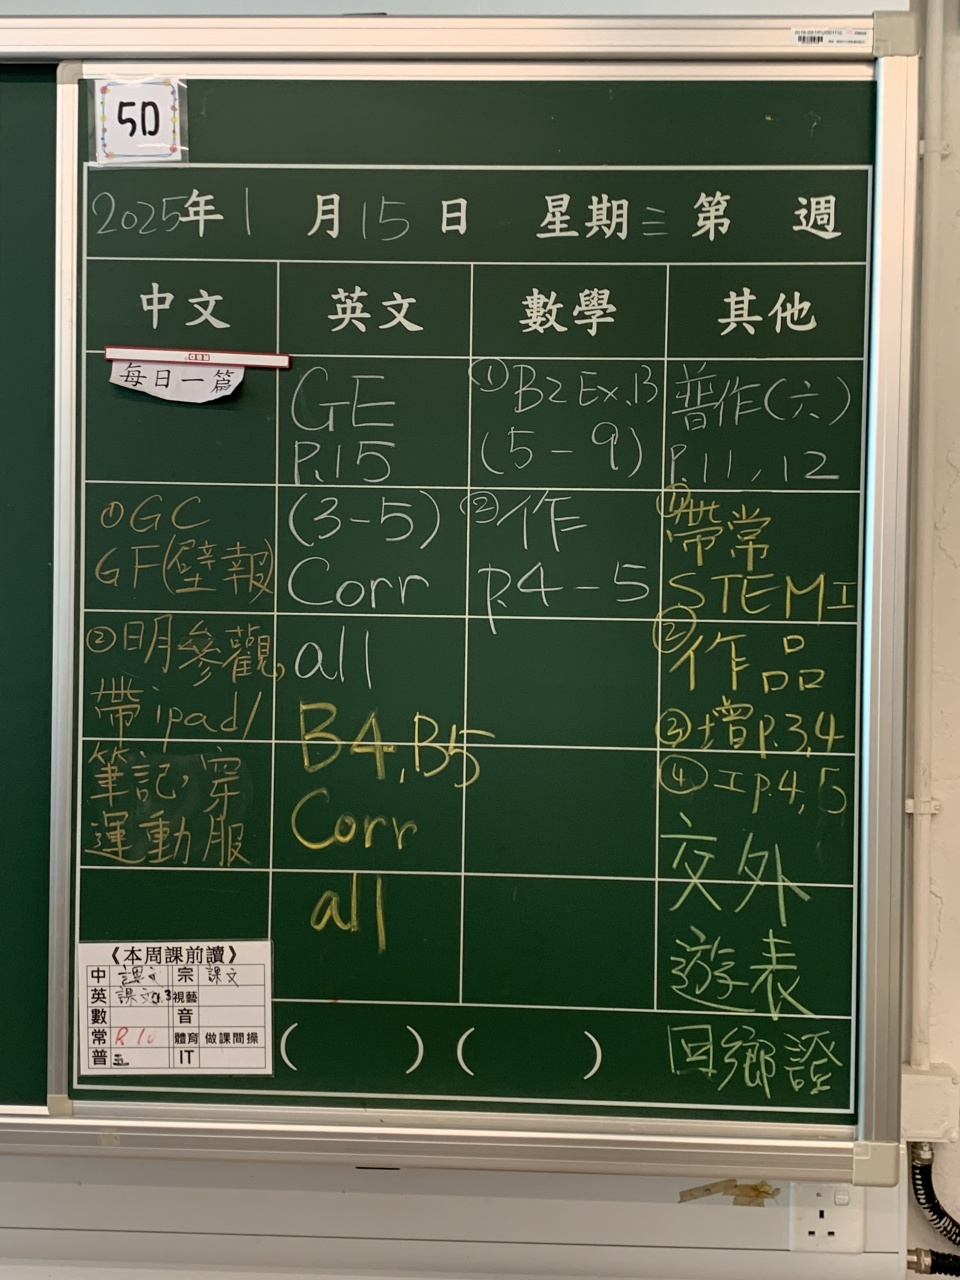 5D
2025年1月15日 星期三 第 週
中文 英文 數學 其他
每日一篇
①GC
GF(壁報)
②明參觀,
帶ipad/
筆記,穿
運動服
GE
P.15
(3-5)
Corr
all
B4,B5
Corr
all
①B2 Ex.B
(5-9)
②作
p.4-5
普作(六)
P.11,12
①帶常
STEM工
②作品
③增p.3,4
④工p.4,5
交外
遊表
回鄉證
《本周課前讀》
中 課文 宗 課文
英 課文 視藝
數 音
常 體育 做課間操
普 五 IT
( ) ( )